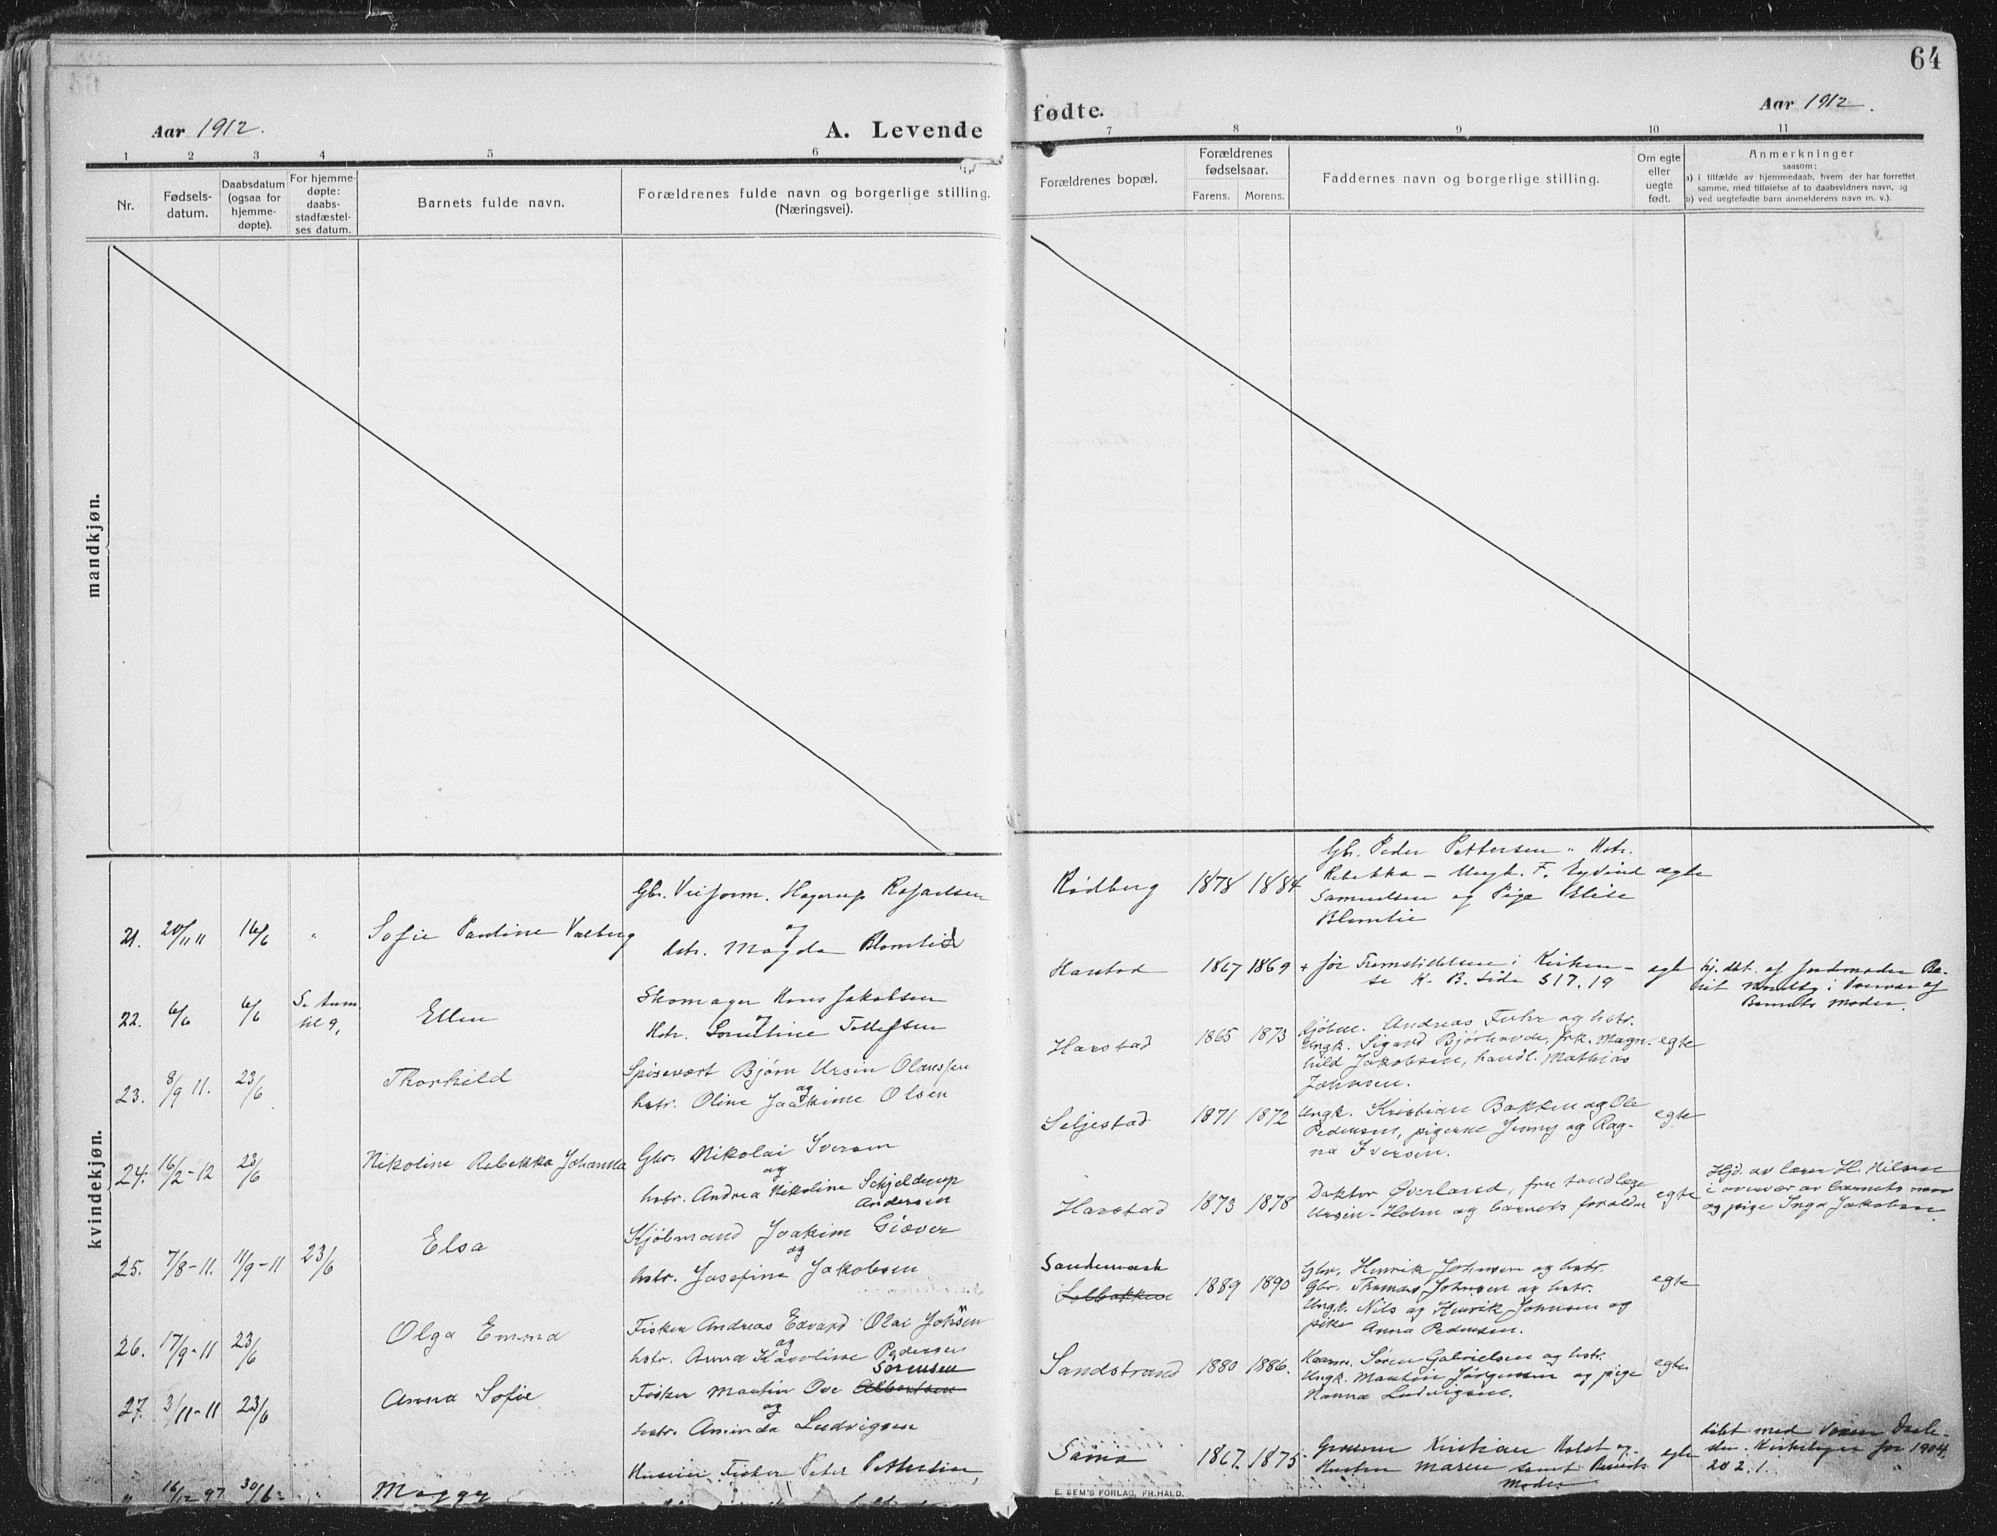 64
Aar 1912.
A. Levende fødte.
Aar 1912.
1 2 3 4 5 6 7 8 9 10 11
Nr.
Fødsels-
datum.
Daabsdatum
(ogsaa for
hjemme-
døpte).
For hjemme-
døpte:
daabs-
stadfæstel-
ses datum.
Barnets fulde navn.
Forældrenes fulde navn og borgerlige stilling.
(Næringsvei).
Forældrenes bopæl.
Forældrenes
fødselsaar.
Farens. Morens.
Faddernes navn og borgerlige stilling.
Om egte
eller
uegte
født.
Anmerkninger
saasom:
a) i tilfælde av hjemmedaab, hvem der har forrettet
samme, med tilføielse af to daabsvidners navn, og
b) ved uegtefødte barn anmelderens navn m. v.).
mandkjøn.
kvindekjøn.
21. 20/11 11 16/6 " Sofie Pauline Valberg
Gbr. Hagerup Rafaelsen
og
hstr. Magda Blomlid
Rødberg 1878 1884
Gbr. Peder Pettersen " Hstr.
Rebekka — Ungk. F. Eyvind
Samuelsen og Pige Elise
Blomlie
ægte
22. 6/6 6/6 Ellen
Skomager Hans Jakobsen
og
Hstr. Tollefsen
Harstad 1867 1869
+ før Fremstillelsen i Kirken —
se K. B. side 517. 19
egte
hj. dbt. af jordemoder
i af
Barnets Moder.
23. 8/9 11. 23/6 Thorhild
Spisevært Bjørn Ursin Olaussen
og
hstr. Oline Joakime Olsen
Harstad 1865 1873
Kjøbm. Andreas Fuhr og hstr.
Ungk. Sigard Bjørhovde, frk. Magn-
hild Jakobsen, handl. Mathias
Johnsen.
egte
24. 16/2-12 23/6 Nikoline Rebekka Johanna
Gbr. Nikolai Iversen
og
hstr. Andrea Nikoline Schjelderup
Andersen
Seljestad 1871 1872
Ungk. Kristian Bakken og Ole
Pedersen, pigerne Jenny og Rag-
na Iversen.
egte
25. 7/8-11. 11/9-11 23/6 Elsa
Kjøbmand Joakim Giæver
og
hstr. Josefine Jakobsen
Harstad 1873 1878
Doktor Øverland, fru tandlæge
Ursin-Holm og barnets foreldre
egte
Hjd. av lærer H. Nilsen
i overvær av barnets mor
og pige Inga Jakobsen.
26. 17/9-11 23/6 Olga Emma
Fisker Andreas Edvard Olai Johnsen
og
hstr. Anna Karoline Pedersen
Sandemark
Solbakken 1889 1890
Gbr. Henrik Johnsen og hstr.
Gbr. Thomas Johnsen og hstr.
Ungk. Nils og Henrik Johnsen og
pike Anna Pedersen.
egte
27. 3/11-11 23/6 Anna Sofie.
Sørensen
Fisker Martin Ove Albertsen
og
hstr. Aminda Ludvigsen
Sandstrand 1880 1886.
Kærm. Søren Gabrielsen og hstr.
Ungk. Martin Jørgensen og pige
Hanna Ludvigsen.
egte
" 16/12 97 30/6 Maggy
Fisker Peter Pettersen,
Sama 1867. 1875
Kristian Holst og
Hustru Maren samt Barnets
Moder
egte
døbt med
Kirkebogen for 1904,
20 2. 1.
E. SEM'S FORLAG, FR.HALD.